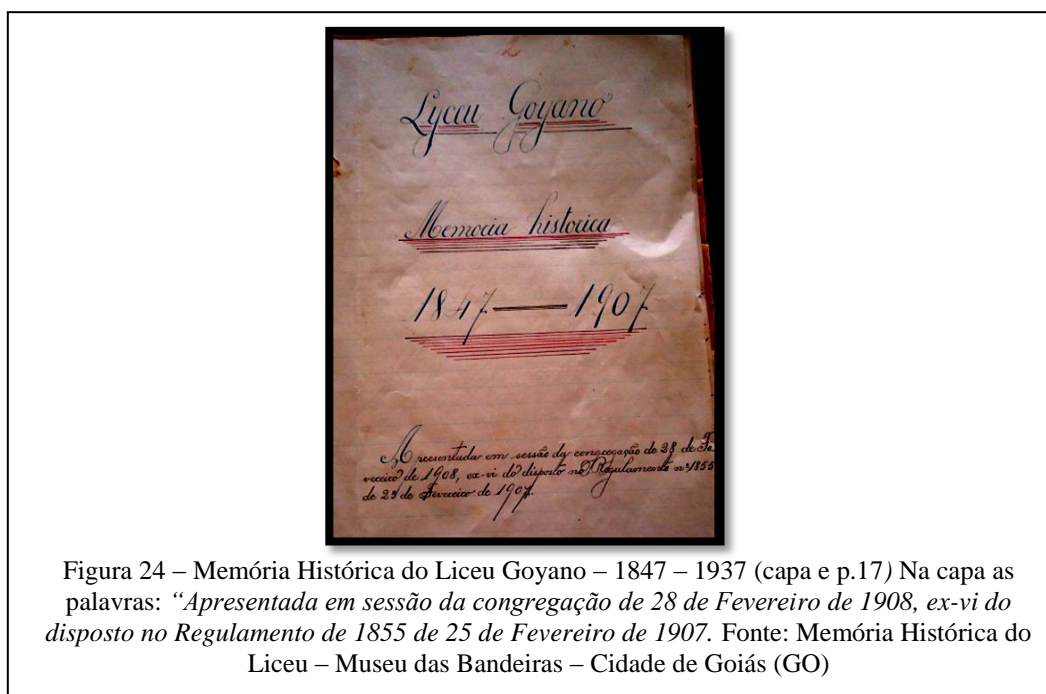 Lyceu Goyano
Memoria historica
1847 — 1907
Apresentada em sessão da congregação de 28 de Fe
vereiro de 1908, ex-vi do disposto no Regulamento nº 1855
de 25 de Fevereiro de 1907.
Figura 24 – Memória Histórica do Liceu Goyano – 1847 – 1937 (capa e p.17) Na capa as
palavras: “Apresentada em sessão da congregação de 28 de Fevereiro de 1908, ex-vi do
disposto no Regulamento de 1855 de 25 de Fevereiro de 1907. Fonte: Memória Histórica do
Liceu – Museu das Bandeiras – Cidade de Goiás (GO)